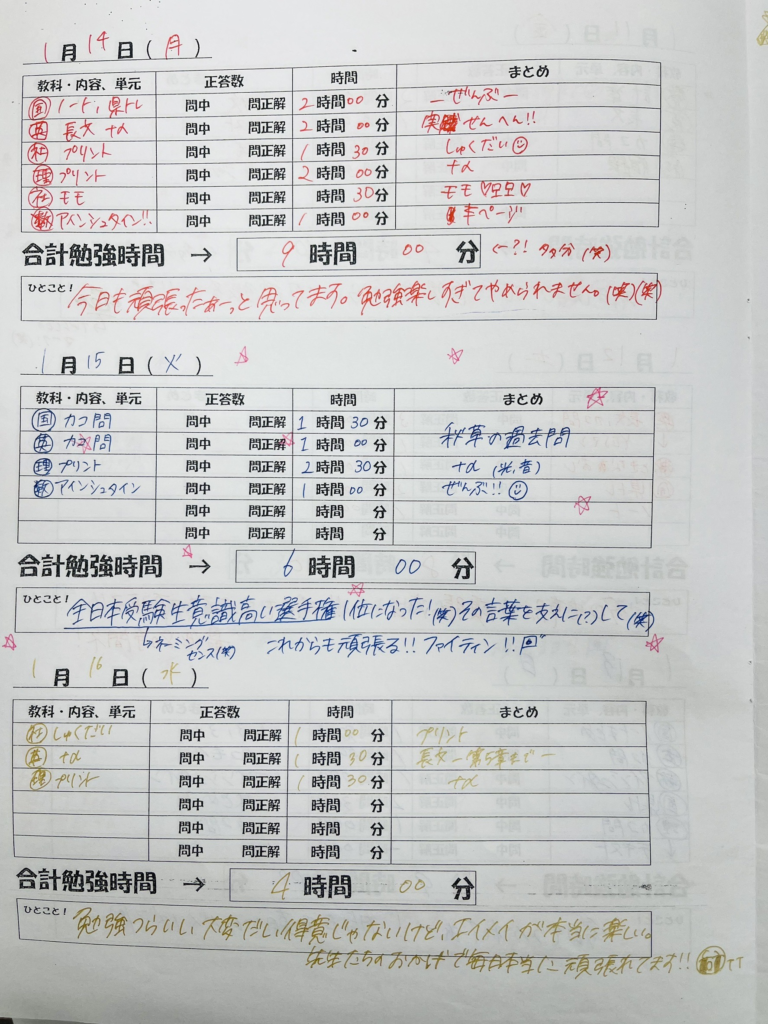 1月14日(月)
教科・内容、単元 正答数 時間 まとめ
国 ノート、県トレ 問中 問正解 2時間00分 ーぜんぶー
英 長文 +α 問中 問正解 2時間00分 実 せんへん!!
社 プリント 問中 問正解 1時間30分 しゅくだい☺
理 プリント 問中 問正解 2時間00分 +α
社 モモ 問中 問正解 時間30分 モモ♡♡
数 アインシュタイン!! 問中 問正解 1時間00分 半ページ
合計勉強時間 → 9時間00分 ←?! タダ分(笑)
ひとこと! 今日も頑張ったぁーっと思ってます。勉強楽しすぎてやめられません。(笑)(笑)
1月15日(火)
教科・内容、単元 正答数 時間 まとめ
国 カコ問 問中 問正解 1時間30分
英 カコ問 問中 問正解 1時間00分 秋草の過去問
理 プリント 問中 問正解 2時間30分 +α(光、音)
数 アインシュタイン 問中 問正解 1時間00分 ぜんぶ!!☺
問中 問正解 時間 分
問中 問正解 時間 分
合計勉強時間 → 6時間00分
ひとこと! 全日本受験生意識高い選手権1位になった!(笑)その言葉を支えに(?)して(笑)
↳ネーミングセンス(笑) これからも頑張る!!ファイティン!!
1月16日(水)
教科・内容、単元 正答数 時間 まとめ
社 しゅくだい 問中 問正解 1時間00分 プリント
英 +α 問中 問正解 1時間30分 長文ー第5章までー
理 プリント 問中 問正解 1時間30分 +α
問中 問正解 時間 分
問中 問正解 時間 分
問中 問正解 時間 分
合計勉強時間 → 4時間00分
ひとこと! 勉強つらいし、大変だし、得意じゃないけど、エイメイが本当に楽しい。
先生たちのおかげで毎日本当に頑張れてます!!